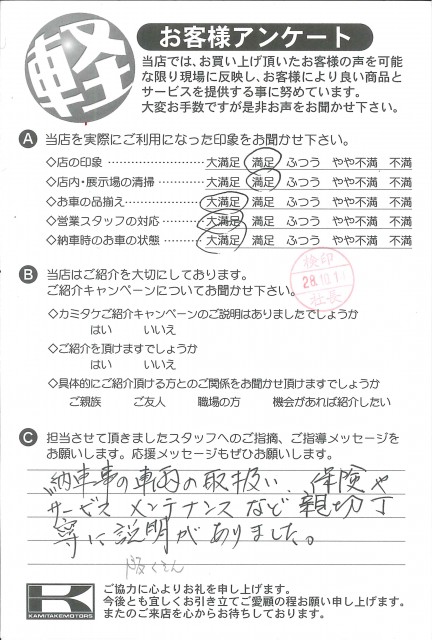 軽
お客様アンケート
当店では、お買い上げ頂いたお客様の声を可能
な限り現場に反映し、お客様により良い商品と
サービスを提供する事に努めています。
大変お手数ですが是非お声をお聞かせ下さい。
A 当店を実際にご利用になった印象をお聞かせ下さい。
◇店の印象 大満足 満足 ふつう やや不満 不満
◇店内・展示場の清掃 大満足 満足 ふつう やや不満 不満
◇お車の品揃え 大満足 満足 ふつう やや不満 不満
◇営業スタッフの対応 大満足 満足 ふつう やや不満 不満
◇納車時のお車の状態 大満足 満足 ふつう やや不満 不満
検印
28.10.11
社長
B 当店はご紹介を大切にしております。
ご紹介キャンペーンについてお聞かせ下さい。
◇カミタケご紹介キャンペーンのご説明はありましたでしょうか
はい いいえ
◇ご紹介を頂けますでしょうか
はい いいえ
◇具体的にご紹介頂ける方とのご関係をお聞かせ頂けますでしょうか
ご親族 ご友人 職場の方 機会があれば紹介したい
C 担当させて頂きましたスタッフへのご指摘、ご指導メッセージを
お願いします。応援メッセージもぜひお願いします。
納車事の車両の取扱い、保険や
サービスメンテナンスなど親切丁
寧に説明がありました。
K
KAMITAKEMOTORS
ご協力に心よりお礼を申し上げます。
今後とも宜しくお引き立てご愛顧の程お願い申し上げます。
またのご来店を心からお待ちしております。